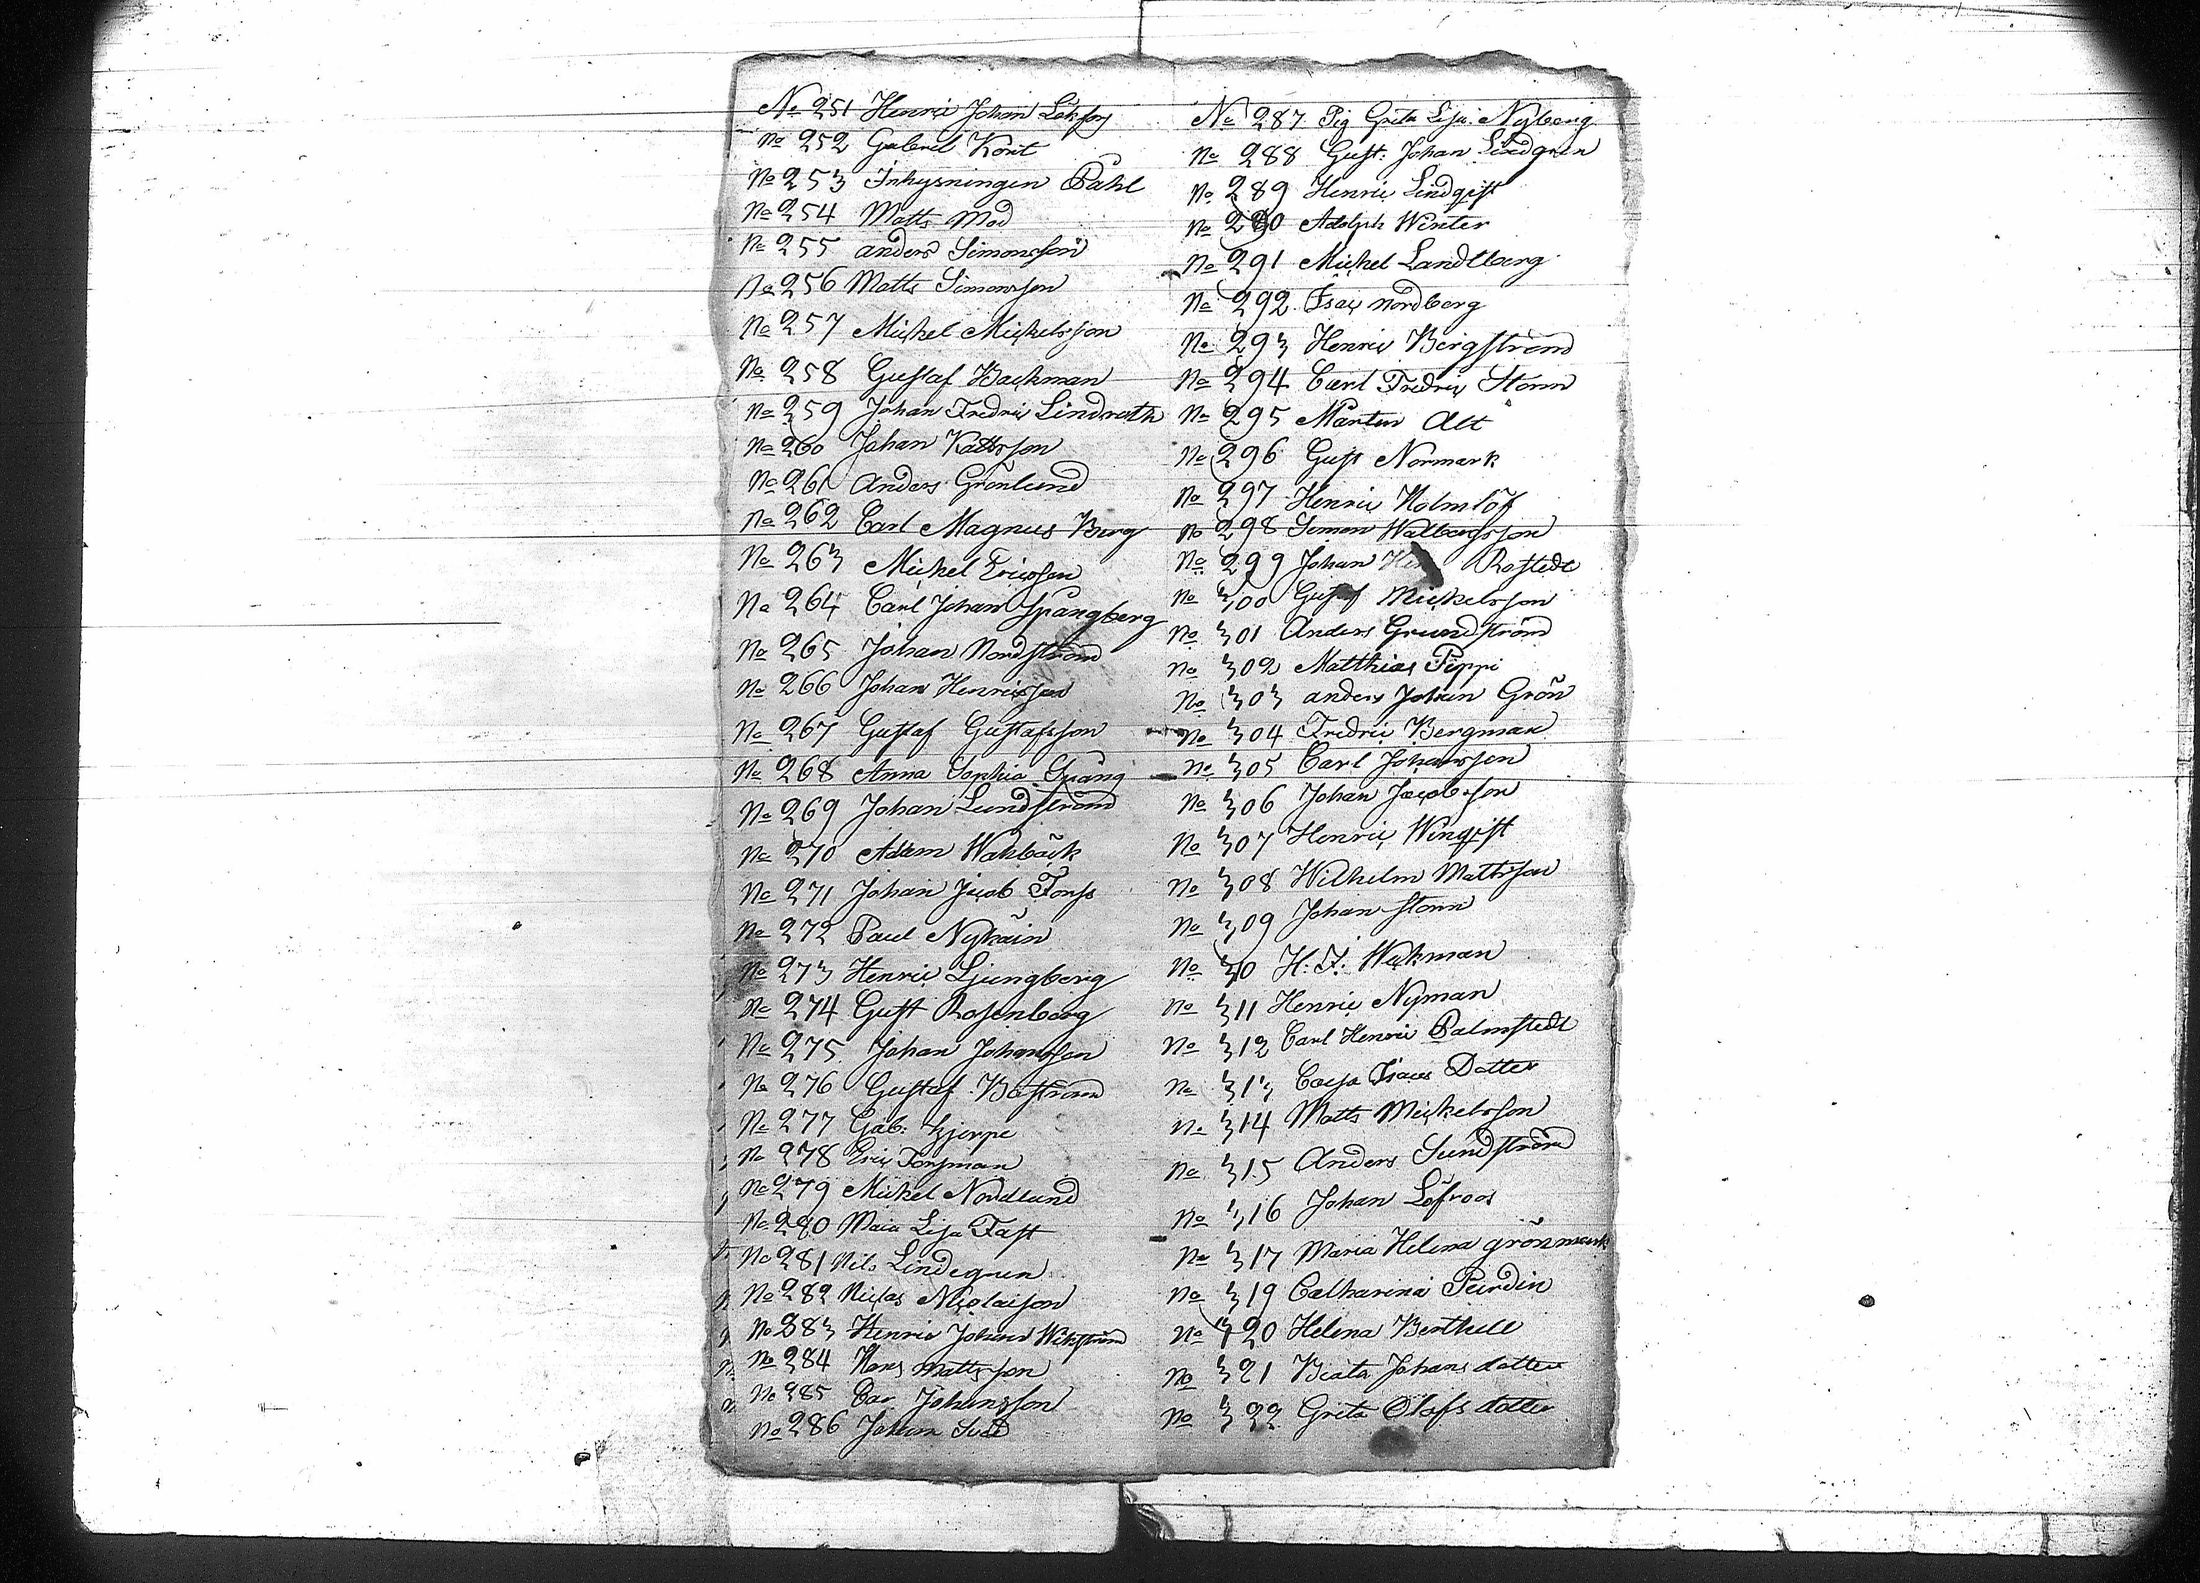 No 251 Henric Johan Löksog
No 252 Gabriel Kort
No 253 Inhysningen Påhl
No 254 Matts Mod
No 255 anders Simonsson
No 256 Matts Simonsson
No 257 Michel Michelsson
No 258 Gustaf Backman
No 259 Johan Fredric Lindroth
No 260 Johan
No 261 anders Grönlund
No 262 Carl Magnus Berg
No 263 Michel Ericsson
No 264 Carl Johan Spångberg
No 265 Johan Nordström
No 266 Johan Henricsson
No 267 Gustaf Gustafsson
No 268 Anna Sophia Spång
No 269 Johan Lundström
No 270 Adam Wahlbäck
No 271 Johan Jacob Forss
No 272 Paul Nykäin
No 273 Henric Ljungberg
No 274 Gust Rosenberg
No 275 Johan Johansson
No 276 Gustaf Boström
No 277 Gab: Hjerpe
No 278 Eric Forsman
No 279 Michel Nordlund
No 280 Maia Lisa Fast
No 281 Nils Lindegren
No 282 Niclas Nicolaison
No 283 Henric Johan Wikström
No 284 Hans Mattsson
No 285 Car Johansson
No 286 Johan
No 287 Pig Greta Lisa Nyberg
No 288 Gust: Johan Lindgren
No 289 Henric Lindqvist
No 290 Adolph Winter
No 291 Michel Landtberg
No 292 Isac Nordberg
No 293 Henric Bergström
No 294 Carl Fredric Storm
No 295 Mårten Alt
No 296 Gust Normark
No 297 Henric Holmlöf
No 298 Simon Walbergsson
No 299 Johan Rostedt
No 300 Gustaf Michelsson
No 301 Anders Grundström
No 302 Matthias Pippi
No 303 anders Johan Grön
No 304 Fredric Bergman
No 305 Carl Johansson
No 306 Johan Jacobsson
No 307 Henric Winqvist
No 308 Wilhelm Mattsson
No 309 Johan Storm
No 30 H: F: Wickman
No 311 Henric Nyman
No 312 Carl Henric Palmstedt
No 313 Caisa Isacs Dotter
No 314 Matts Michelsson
No 315 Anders Sundström
No 316 Johan Löfroos
No 317 Maria Helena grönmark
No 319 Catharina Purdin
No 320 Helena Berthell
No 321 Beata Johans dotter
No 322 Greta Olofs dotter